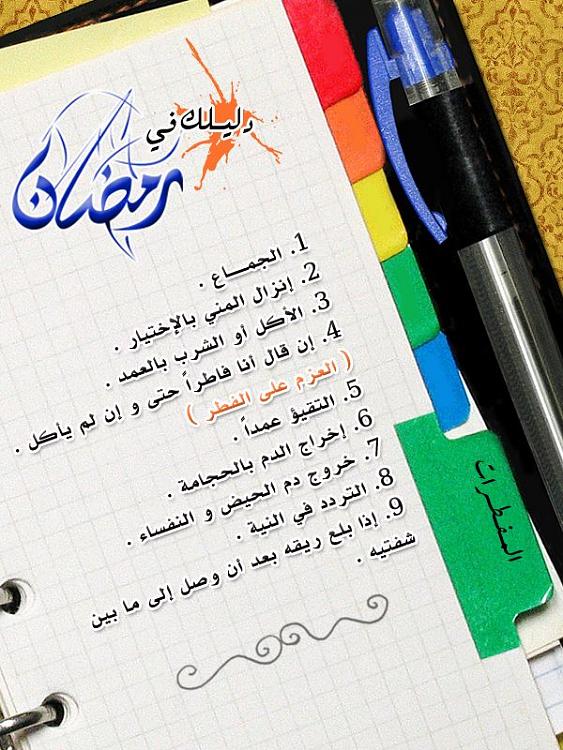 دليلك في
رمضان
1. الجمـــاع .
2. إنزال المني بالإختيار .
3. الأكل أو الشرب بالعمد .
4. إن قال أنا فاطراً حتى و إن لم يأكل .
( العزم على الفطر )
5. التقيؤ عمداً .
6. إخراج الدم بالحجامة .
7. خروج دم الحيض و النفساء .
8. التردد في النية .
9. إذا بلع ريقه بعد أن وصل إلى ما بين
شفتيه .
المفطرات